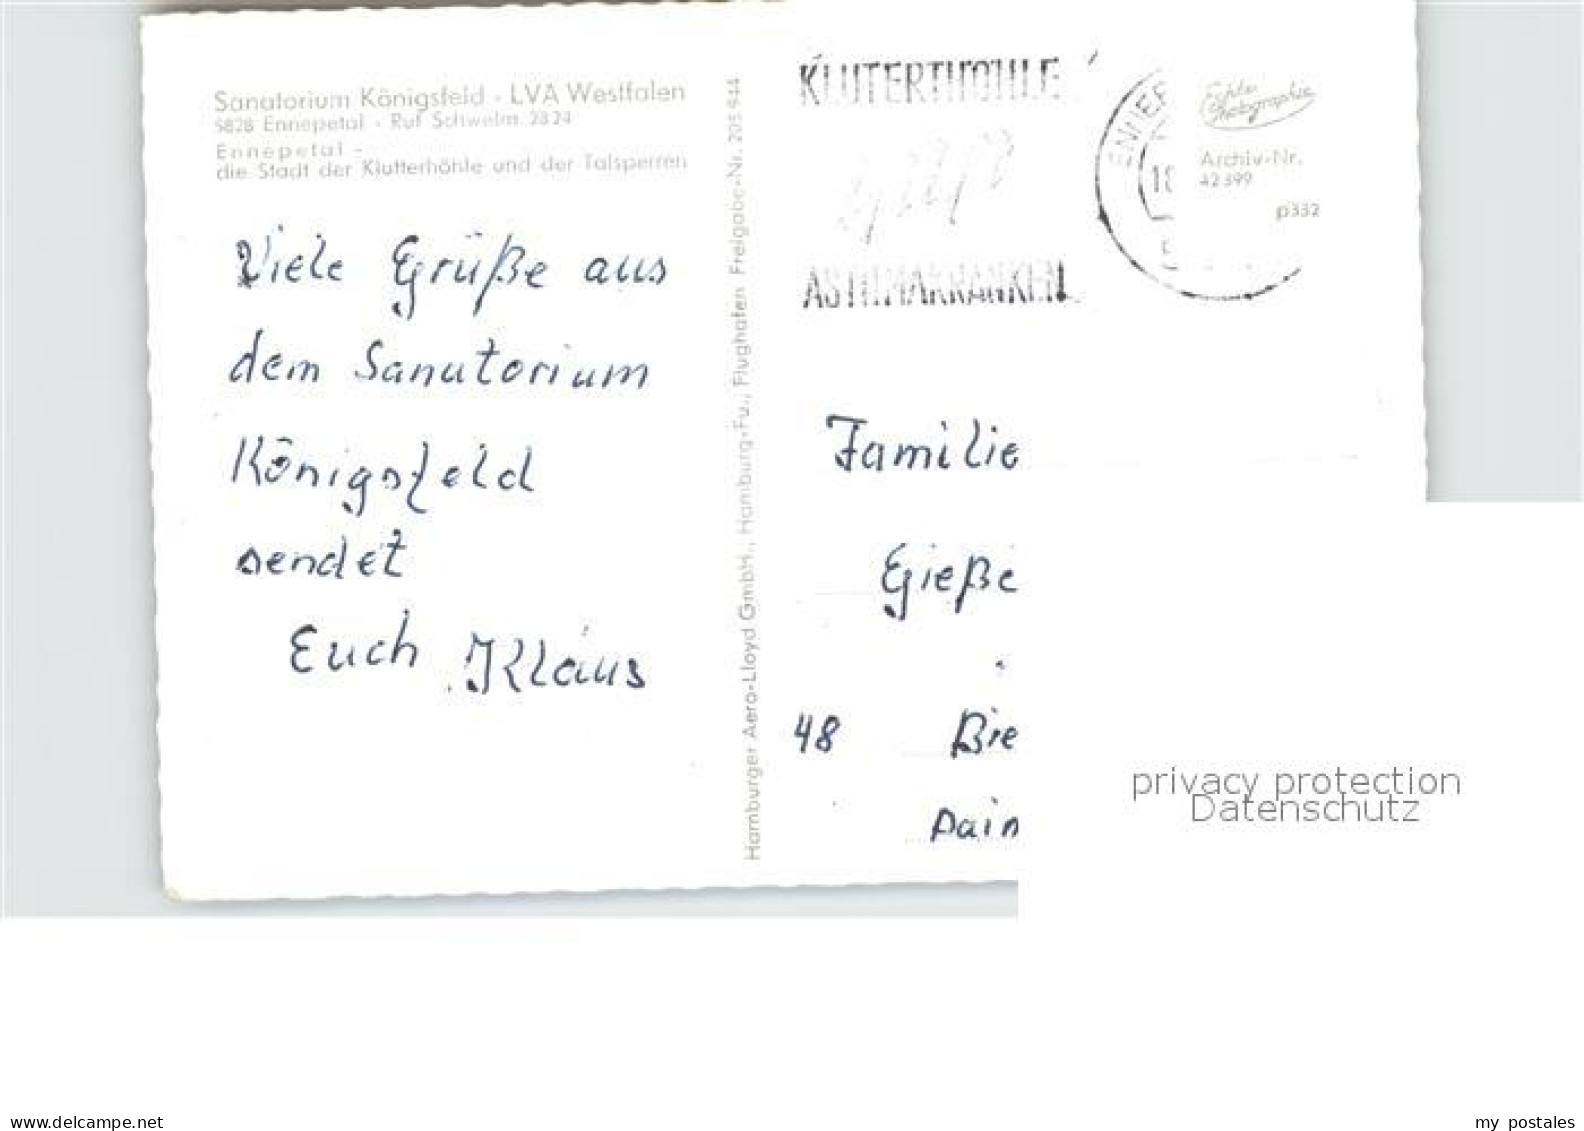 Sanatorium Königsfeld - LVA Westfalen
5828 Ennepetal - Ruf Schwelm 2824
Ennepetal -
die Stadt der Klutterhöhle und der Talsperren
Viele Grüße aus
dem Sanatorium
Königsfeld
sendet
Euch Klaus
Hamburger Aero-Lloyd GmbH., Hamburg-Fu., Flughafen Freigabe-Nr. 205 944
KLUTERTHÖHLE
ASTHMAKRANKEN
ENNEP
18
5
Echte
Photographie
Archiv-Nr.
42 399
p332
Familie
Gieße
48 Bie
Dain
privacy protection
Datenschutz
www.delcampe.net
my postales